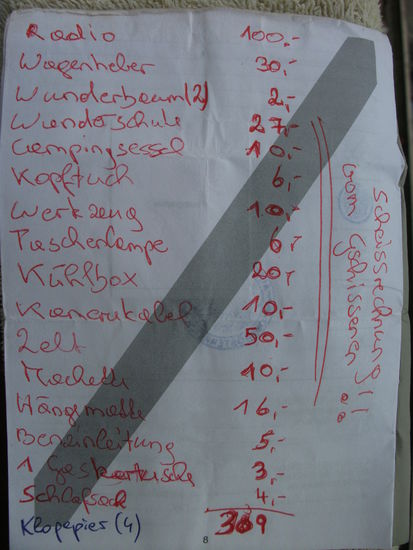 Radio 100,-
Wagenheber 30,-
Wunderbaum(2) 2,-
Wanderschuhe 27,-
Campingsessel 10,-
Kopftuch 6,-
Werkzeug 10,-
Taschenlampe 6,-
Kühlbox 20,-
Kamerakabel 10,-
Zelt 50,-
Machete 10,-
Hängematte 16,-
Benzinleitung 5,-
1 Gaskartusche 3,-
Schlafsack 4,-
Klopapier (4) 369
8
Scheissrechnung!!
vom Gschissenen!!